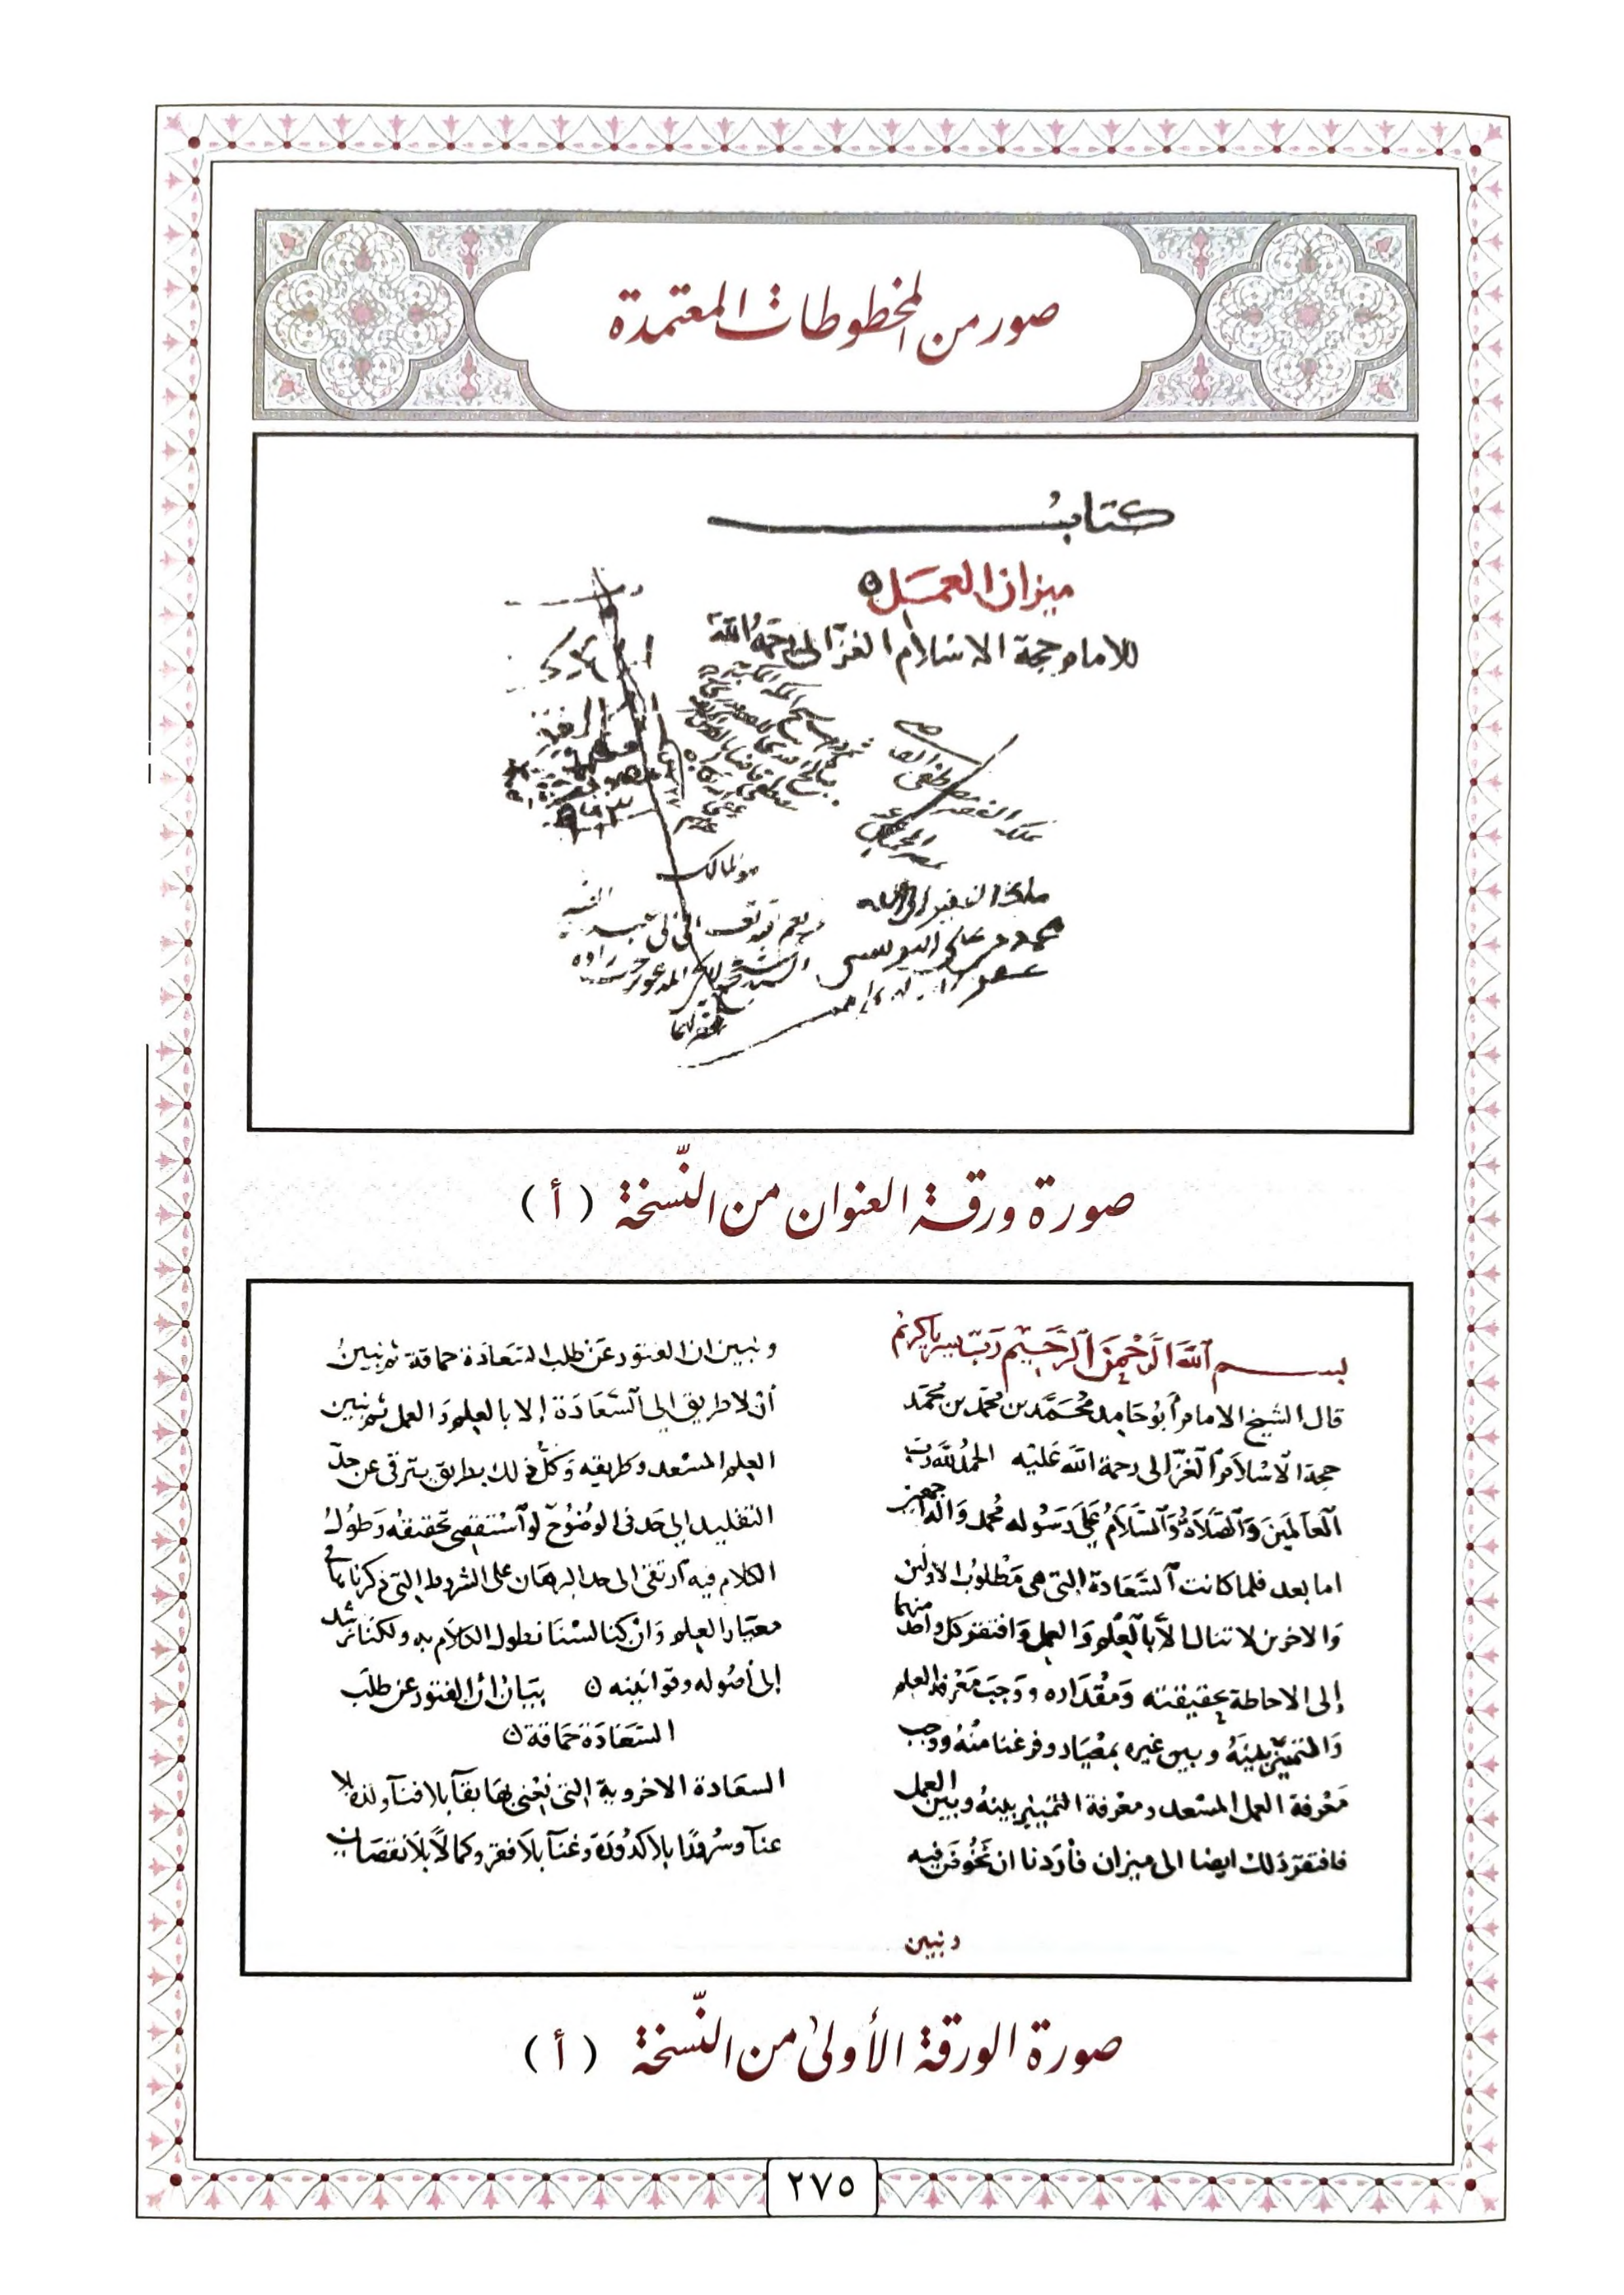 صور من المخطوطات المعتمدة
كتاب
ميزان العمل
للامام حجة الاسلام الغزالى رحمه الله
ملكه الفقير الى الله
صورة ورقة العنوان من النّسخة ( أ )
بسم الله الرحمن الرحيم رب يسر يا كريم
قال الشيخ الامام أبو حامد محمد بن محمد بن محمد
حجة الاسلام الغزالى رحمة الله عليه الحمد لله رب
العالمين والصلاة والسلام على رسوله محمد واله اجمعين
اما بعد فلما كانت السعادة التى هى مطلوب الاولين
والاخرين لا تنال الا بالعلم والعمل وافتقر كل واحد منهما
إلى الاحاطة بحقيقته ومقداره ووجب معرفة العلم
والتمييز بينه وبين غيره بمعيار وفرغنا منه ووجب
معرفة العمل المسعد ومعرفة التمييز بينه وبين العمل
فافتقر ذلك ايضا الى ميزان فأردنا ان نخوض فيه
ونبين
ونبين ان الفتور عن طلب السعادة حماقة ثم نبين
أن لا طريق إلى السعادة إلا بالعلم والعمل ثم نبين
العلم المسعد وطريقه وكل ذلك بطريق يترقى عن حد
التقليد إلى حد فى الوضوح لو استقصى تحقيقه وطول
الكلام فيه ارتقى الى حد البرهان على الشروط التى ذكرناها فى
معيار العلم وان كنا لسنا نطول الكلام به ولكنا نرشد
إلى أصوله وقوانينه ه بيان أن الفتور عن طلب
السعادة حماقة ه
السعادة الاخروية التى نعنى بها بقآ بلا فنآ ولذة بلا
عنآ وسرورا بلا كدورة وغنآ بلا فقر وكمالا بلا نقصان
صورة الورقة الأولى من النّسخة ( أ )
٢٧٥